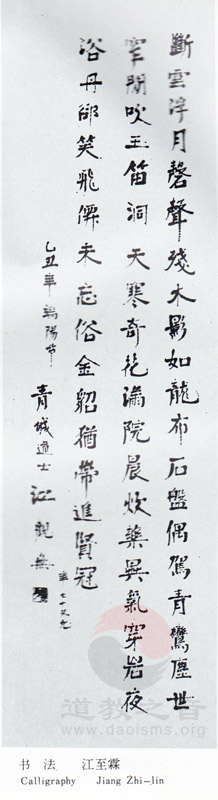 斷雲浮月磬聲殘木影如龍布石盤偶駕青鸞塵世
窄閒吹玉笛洞天寒奇花滿院晨炊藥異氣穿岩夜
浴丹卻笑飛僊未忘俗金貂猶帶進賢冠
乙丑年端陽節
青城道士江
年七十又九
道教之音
www.daoisms.org
书法 江至霖
Calligraphy Jiang Zhi-lin